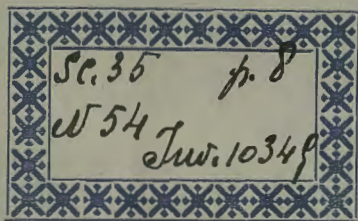 Sc. 35 p. 8
N 54
Inv. 10349